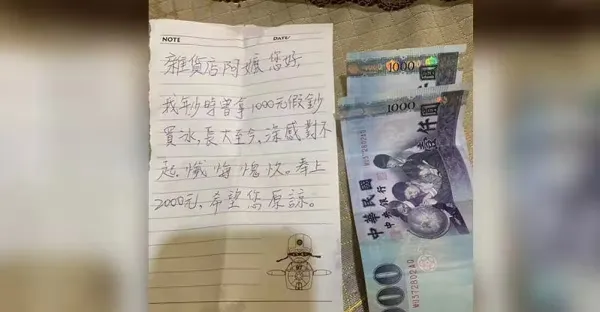 NOTE
DATE
雜貨店阿嬤您好
我年少時曾拿1000元假鈔
買冰,長大至今,深感對不
起,懺悔愧疚。奉上
2000元,希望您原諒。
1000
1000
壹仟圓
中華民國
中央銀行
000